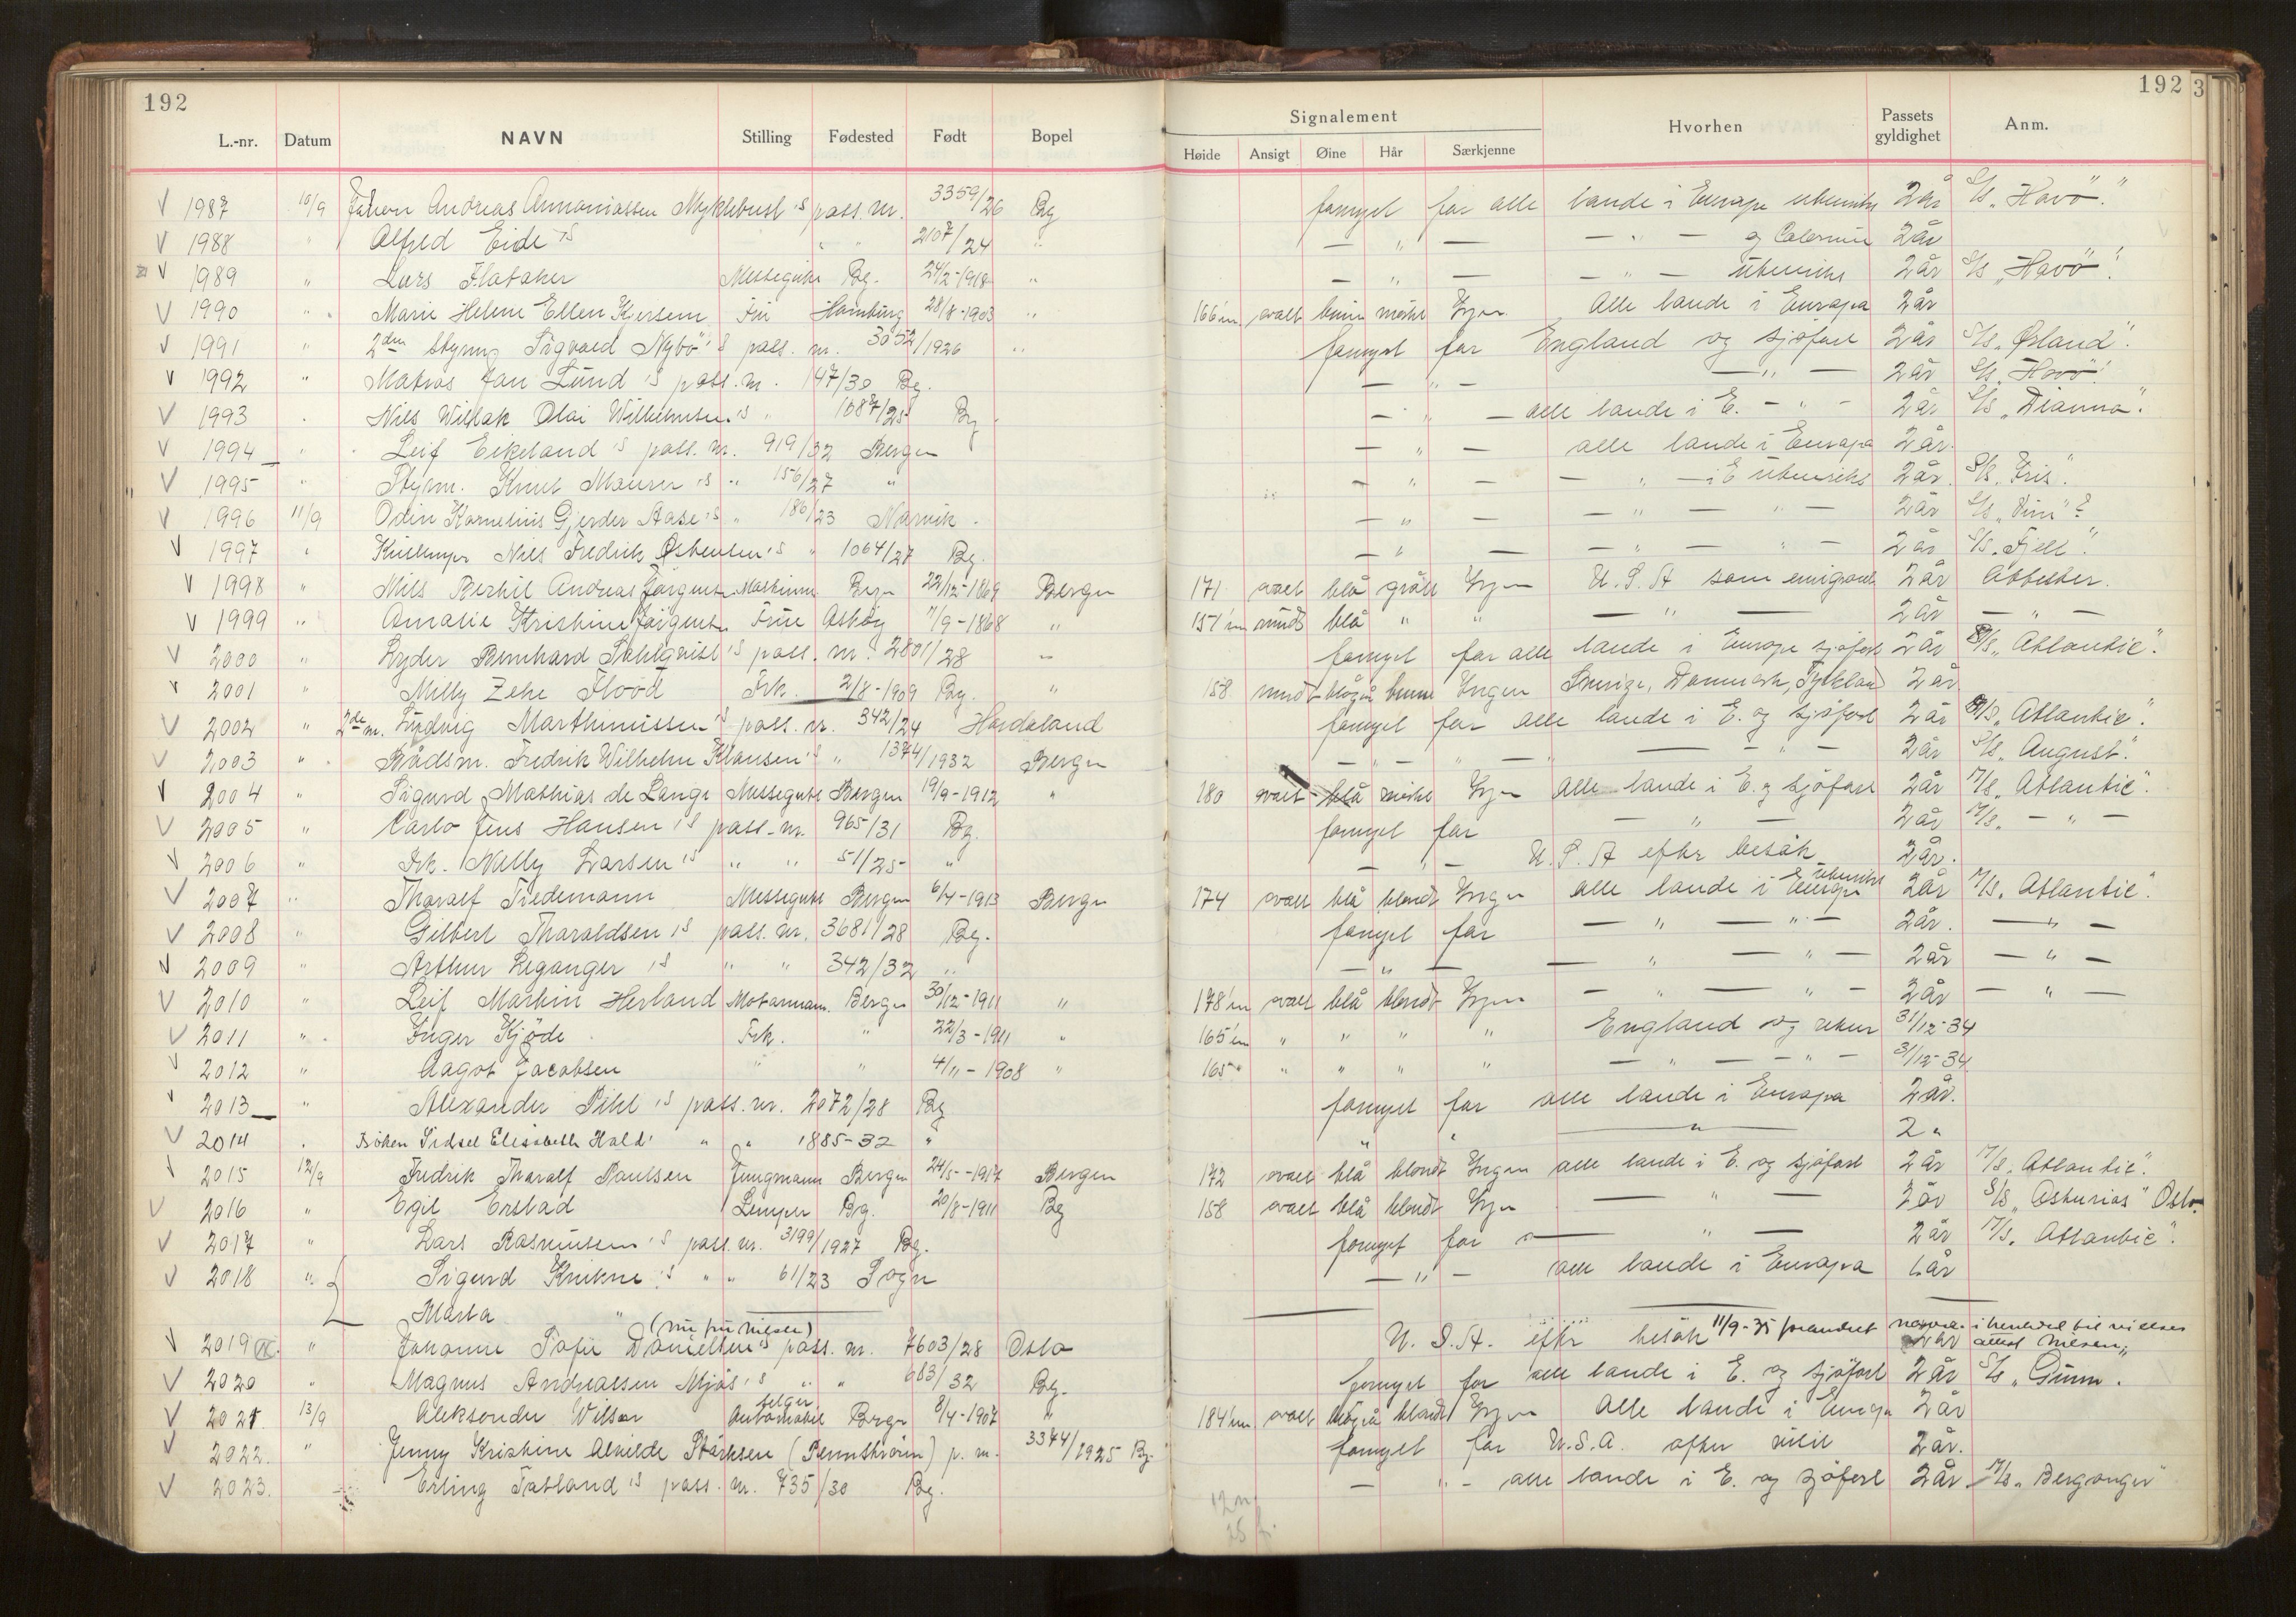 192
192 3
L.-nr. Datum NAVN Stilling Fødested Født Bopel
Signalement
Høide Ansigt Øine Hår Særkjenne Hvorhen Passets gyldighet Anm.
1987 10/9 Andreas Myklebust's pass. nr. 3359/26 Bg fornyet for alle lande i Europa 2 år S/s „Havö".
1988 " Alfred Eide's " " 2107/24 " — " — — " — og 2 år
1989 " Lars Flataker Messegutt Bg. 24/2-1918 " — " — — " — utenriks 2 år S/s „Havö".
1990 " Marie Helene Ellen Fru Hamburg 28/8-1903 " 166 cm. ovalt brune mörke Ingen Alle lande i Europa 2 år
1991 " 2den Styrm. Sigvald Nybö's pass. nr. 3052/1926 " fornyet for England og sjöfart 2 år S/s „Örland".
1992 " Matros Jan Lund's pass. nr. 147/30 Bg. — " — — " — 2 år S/s „Havö".
1993 " Nils Olai Wilhelmsen's " 1687/25 Bg. — " — alle lande i E. — " — 2 år S/s „Dianna".
1994 " Leif Eikeland's pass. nr. 919/32 Bergen — " — alle lande i Europa 2 år.
1995 " Styrm. Knut Maurer's " 156/27 " — " — — " — i E utenriks 2 år. S/s „Iris".
1996 11/9 Odin Kornelius Gjerder Aase's " 186/23 Narvik. — " — — " — " — 2 år S/s
1997 " Nils Fredrik Østensen's " 1064/27 Bg. — " — — " — " — 2 år S/s „Fjell".
1998 " Nils Berhil Andreas Jörgensen Maskinm. Bergen 22/12-1869 Bergen 171 ovalt blå grått Ingen U.S.A som emigrant 2 år Attester.
1999 " Amalie Kristine Jörgensen Frue Asköy 7/9-1868 " 151 cm rundt blå " " — " — 2 år — " —
2000 " Lyder Bernhard Dahlqvist's pass. nr. 2801/28 " fornyet for alle lande i Europa sjöfart 2 år M/s „Atlantic".
2001 " Milly Zehe Flood Frk. 2/8-1909 Bg. " 158 rundt blågrå brune Ingen Sverige, Danmark, Tyskland 2 år
2002 " 2de m. Ludvig Marthinussen's pass. nr. 342/24 Hordaland fornyet for alle lande i E. og sjöfart 2 år M/s „Atlantic".
2003 " Bådsm. Fredrik Wilhelm Klausen's " 1374/1932 Bergen — " — " — — " — 2 år S/s „August".
2004 " Sigurd Mathias de Lange Messegutt Bergen 19/9-1912 " 180 ovalt blå mörke Ingen Alle lande i E. og sjöfart 2 år M/s „Atlantic".
2005 " Carlo Jens Hansen's pass. nr. 965/31 Bg. fornyet for — " — 2 år M/s. — " —
2006 " Frk. Nelly Larsen's " " 51/25 " — " — U.S.A efter besök 2 år.
2007 " Tharalf Tiedemann Messegutt Bergen 6/4-1913 Bergen 174 ovalt blå blondt Ingen alle lande i Europa utenriks 2 år M/s. Atlantic".
2008 " Gilbert Tharaldsen's pass. nr. 3681/28 Bg. fornyet for — " — " — 2 år. — " —
2009 " Arthur Leganger's " " 342/32 " — " — — " — " — 2 år — " —
2010 " Leif Martin Herland Motormann Bergen 30/12-1911 " 178 cm ovalt blå blondt Ingen — " — " — 2 år — " —
2011 " Inger Kjöde Frk. " 22/3-1911 " 165 cm " " " " England og retur 31/12-34
2012 " Aagot Jacobsen " " 4/11-1908 " 165 " " " " " — " — " — 31/12-34
2013 " Alexander Pihl's pass. nr. 2072/28 Bg fornyet for alle lande i Europa 2 år.
2014 " Fröken Sidsel Elisabeth Hald " " 1885-32 " " " — " — 2 "
2015 12/9 Fredrik Tharalf Paulsen Jungmann Bergen 24/5-1917 Bergen 172 ovalt blå blondt Ingen alle lande i E. og sjöfart 2 år M/s. Atlantic".
2016 " Egil Erstad Lemper Bg. 20/8-1911 Bg 158 ovalt blå blondt Ingen — " — 2 år S/s „Asturias" Oslo.
2017 " Lars Rasmussen's pass. nr. 3199/1927 Bg. fornyet for — " — 2 år M/s. Atlantic".
2018 " Sigurd 's " " 61/23 Sogn — " — alle lande i Europa år
Marta " ———
(nu fru Nilsen) 11/9-35 forandret i henhold til vielses
2019 " Johanne Sofie Danielsen's pass. nr. 7603/28 Oslo U.S.A. efter besök 2 år attest Nilsen"
2020 " Magnus Andreassen Mjös's " " 683/32 Bg. fornyet for alle lande i E. og sjöfart 2 år S/s „Gunn.
2021 13/9 Aleksander Wilson Automobil selger Bergen 8/4-1907 " 184 cm ovalt blågrå blondt Ingen Alle lande i Europa 2 år
2022. " Jenny Kristine Alvilde Stärksen p. nr. 3344/1925 Bg. fornyet for U.S.A. efter visit 2 år.
2023. Erling Tatland's pass. nr. 735/30 Bg. — " — alle lande i E. og sjöfart 2 år. M/s. Berganger"
12 m